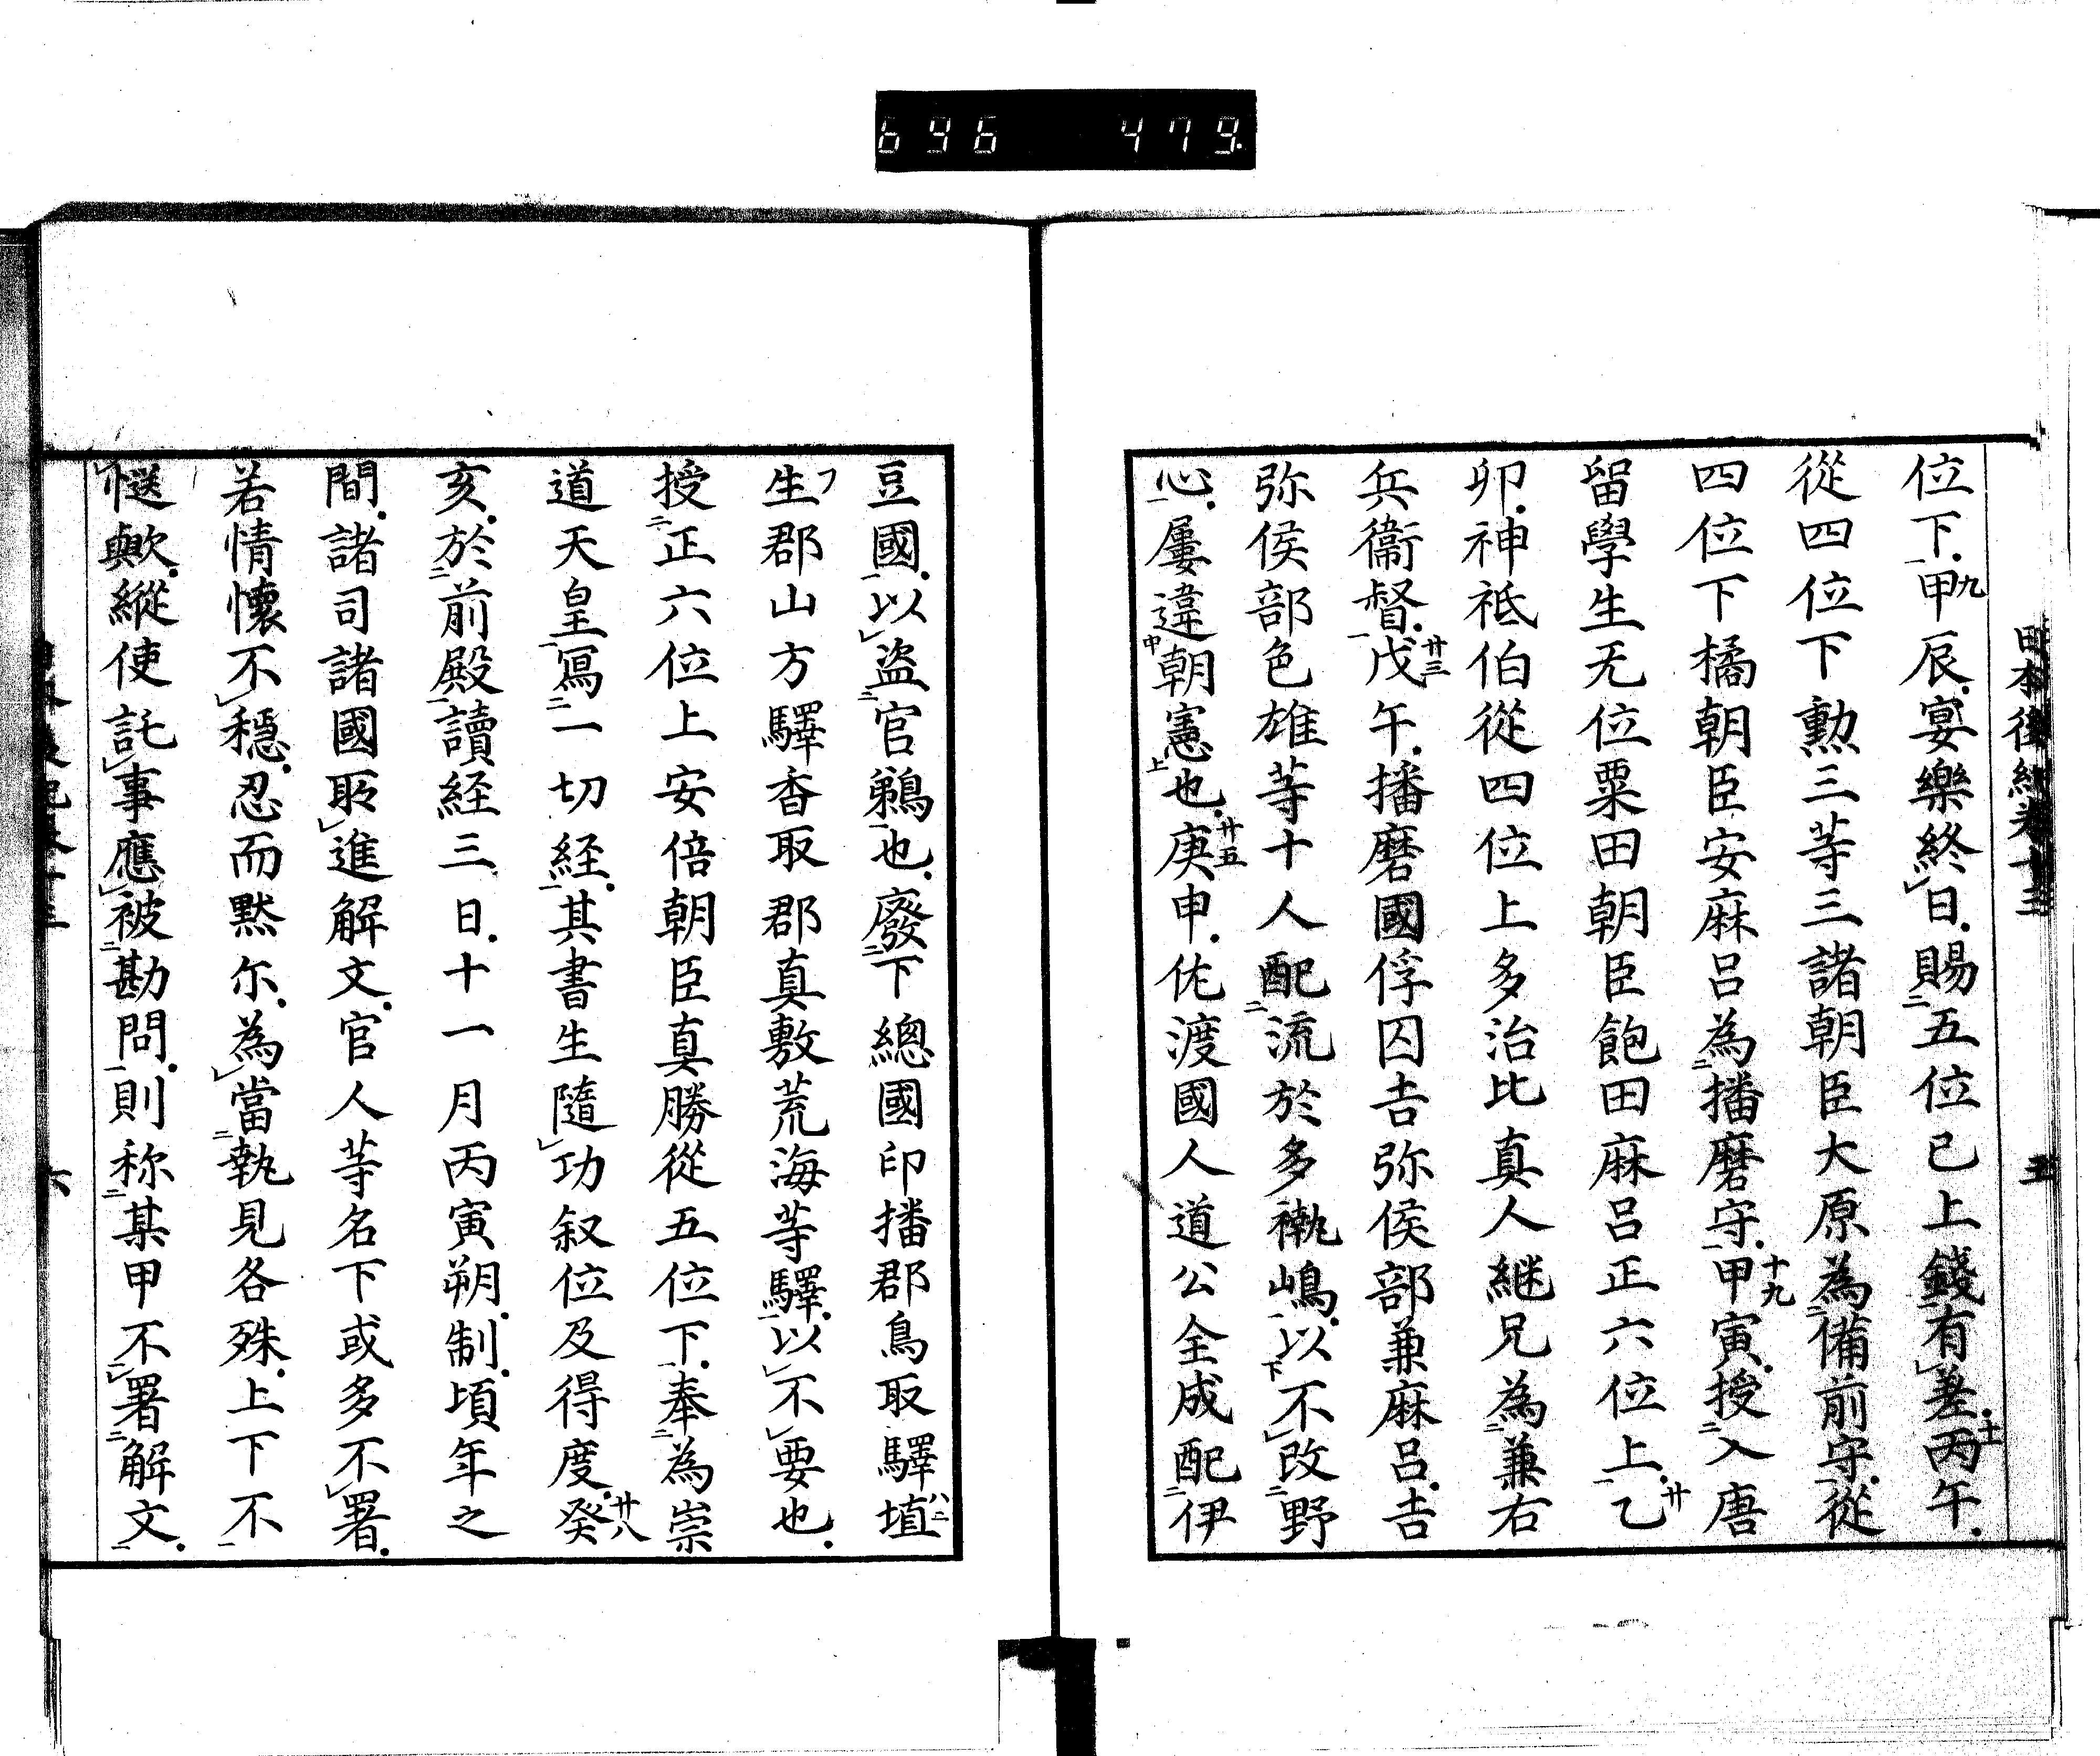 696 479
日本後紀卷十三 五
位下甲辰宴樂終日賜五位已上錢有差丙午
從四位下勲三等三諸朝臣大原為備前守從
四位下橘朝臣安麻呂為播磨守甲寅授入唐
留學生无位粟田朝臣飽田麻呂正六位上乙
卯神祇伯從四位上多治比真人継兄為兼右
兵衞督戊午播磨國俘囚吉弥侯部兼麻呂吉
弥侯部色雄等十人配流於多褹嶋以不改野
心屢違朝憲也庚申佐渡國人道公全成配伊
豆國以盗官鵜也廢下總國印播郡鳥取驛埴
生郡山方驛香取郡真敷荒海等驛以不要也
授正六位上安倍朝臣真勝從五位下奉為崇
道天皇寫一切経其書生隨功叙位及得度癸
亥於前殿讀経三日十一月丙寅朔制頃年之
間諸司諸國所進解文官人等名下或多不署
若情懐不穏忍而黙尓為當執見各殊上下不
愜歟縱使託事應被勘問則称某甲不署解文
六